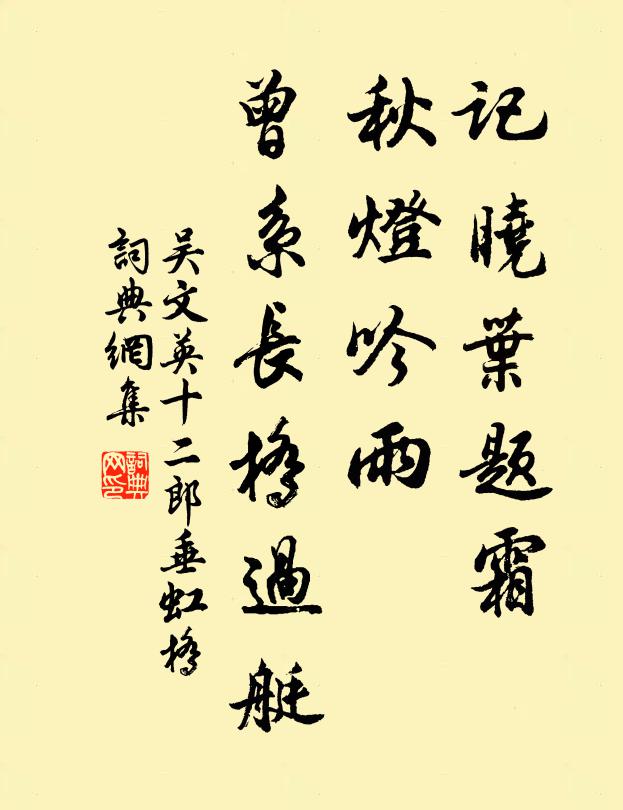 记曉葉题霜
秋燈吟雨
曾系長橋過艇
吴文英十二郎垂虹橋
詞典網集
詞典网印